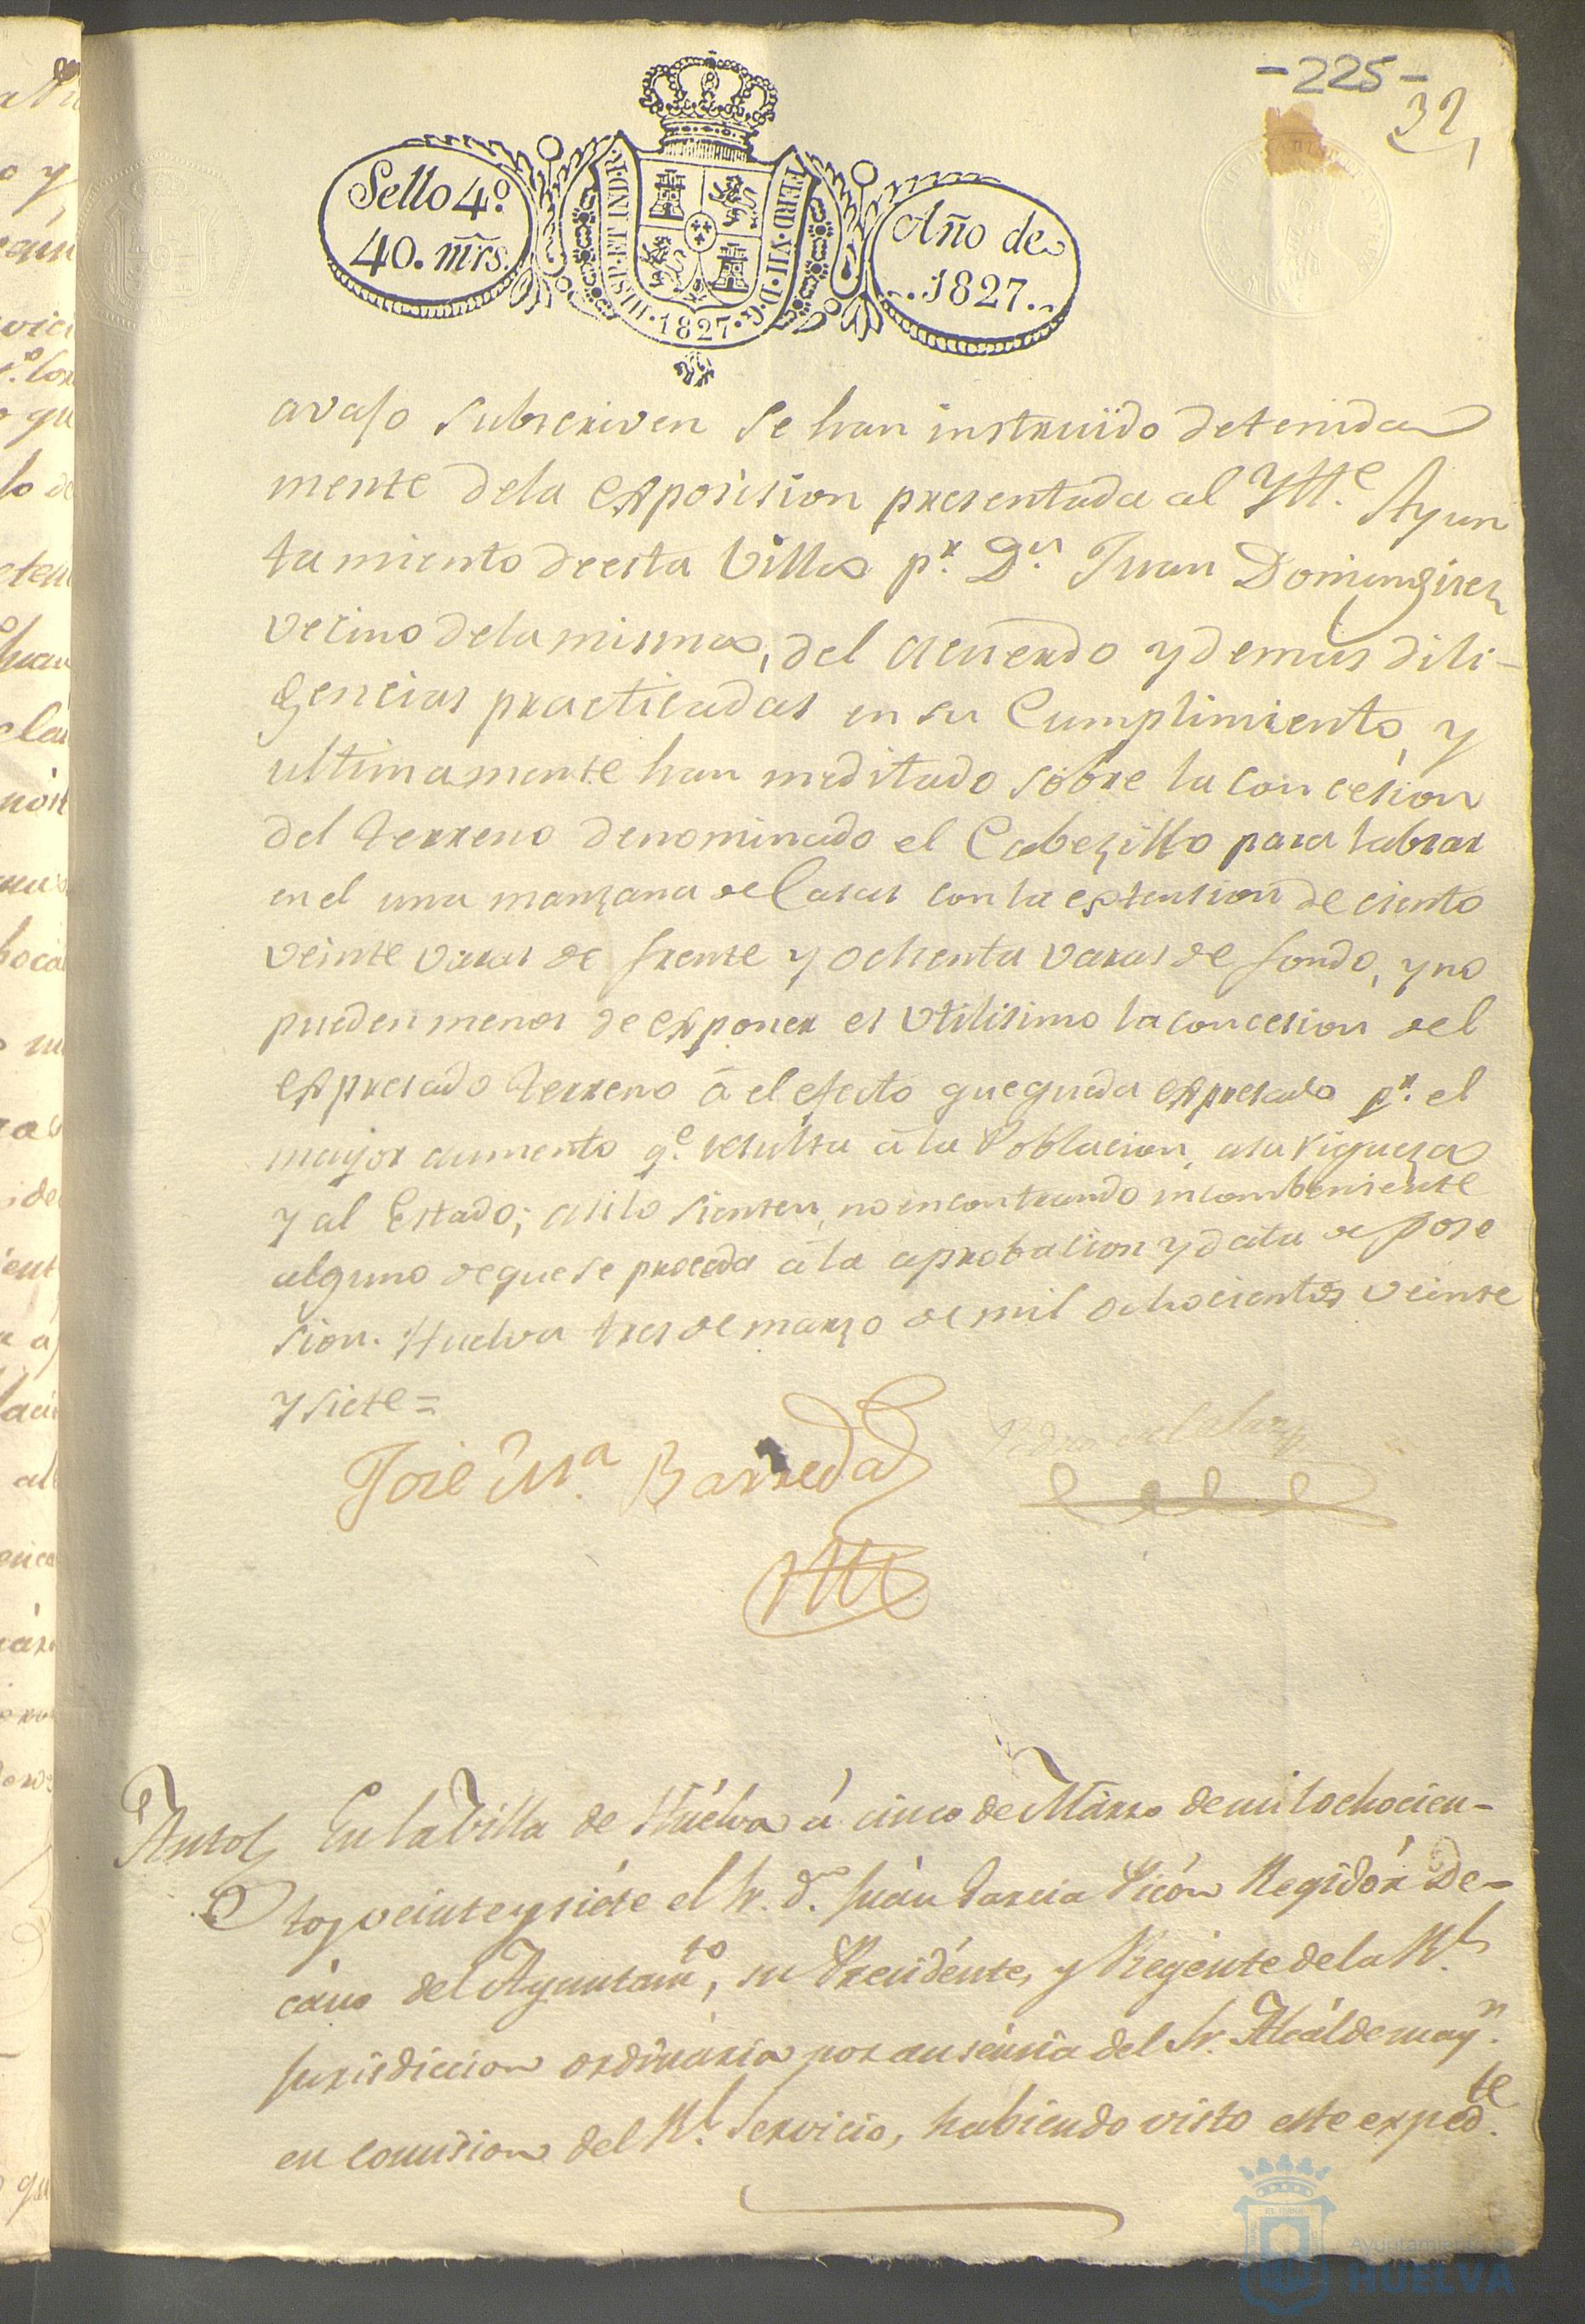 -225-
32
Sello 4º.
40. mrs.
HISP. ET IND. R.
FERD. VII. D. G.
1827
Año de
1827.
avajo subscriven se han instruido detenida
mente dela exposision presentada al Ytt.e Ayun
tamiento de esta Villa pr. Dn. Juan Dominguez
vecino dela misma, del acuerdo y demas dili-
gencias practicadas en su Cumplimiento, y
ultimamente han meditado sobre la concesion
del terreno denominado el Cabezillo para labrar
en el una manzana de Casas con la extension de ciento
veinte varas de frente y ochenta varas de fondo, y no
pueden menos de exponer es Utilisimo la concesion del
expresado terreno á el efecto que queda expresado pr. el
mayor aumento qe. resulta á la Poblacion, a su riqueza
y al Estado; asi lo sienten, no encontrando incombeniente
alguno de que se proceda á la aprobacion y data de pose
sion. Huelva tres de marzo de mil ochocientos veinte
y siete=
José Ma. Barreda
Pedro del
Auto En la Villa de Huelva á cinco de Márzo de mil ochocien-
tos veinte y siete el Sr. Dn. Juán Garcia Picón Regidór De-
cáno del Ayuntamto, su Presidénte, y Regénte de la Rl.
jurisdiccion ordinária por auséncia del Sr. Alcálde mayr.
en comision del Rl. Servicio, habiendo visto este expedte.
Ayuntamiento de
HUELVA